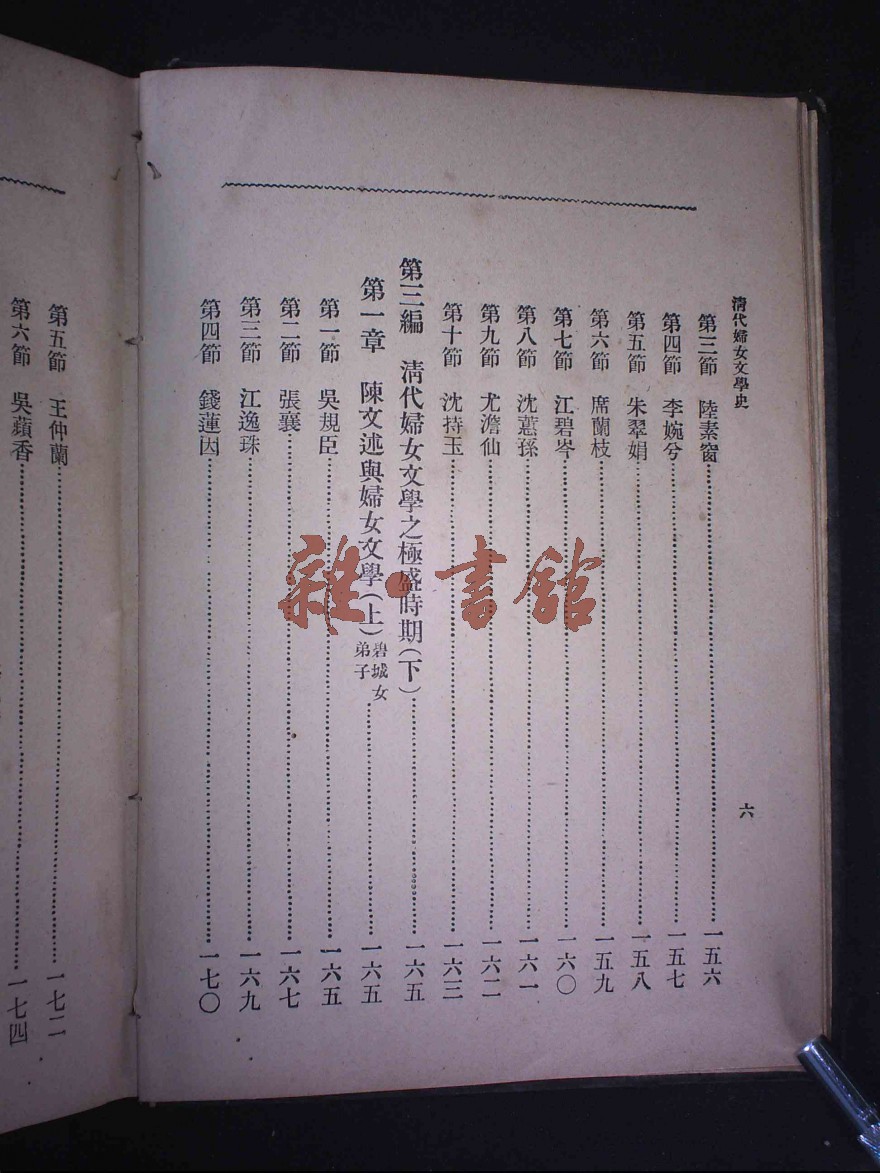 清代婦女文學史
六
第三節　陸素窗…………一五六
第四節　李婉兮…………一五七
第五節　朱翠娟…………一五八
第六節　席蘭枝…………一五九
第七節　江碧岑…………一六〇
第八節　沈蕙孫…………一六一
第九節　尤澹仙…………一六二
第十節　沈持玉…………一六三
第三編　清代婦女文學之極盛時期(下)…………一六五
第一章　陳文述與婦女文學(上)碧城女弟子…………一六五
第一節　吳規臣…………一六五
第二節　張襄…………一六七
第三節　江逸珠…………一六九
第四節　錢蓮因…………一七〇
第五節　王仲蘭…………一七二
第六節　吳蘋香…………一七四
雜·書館